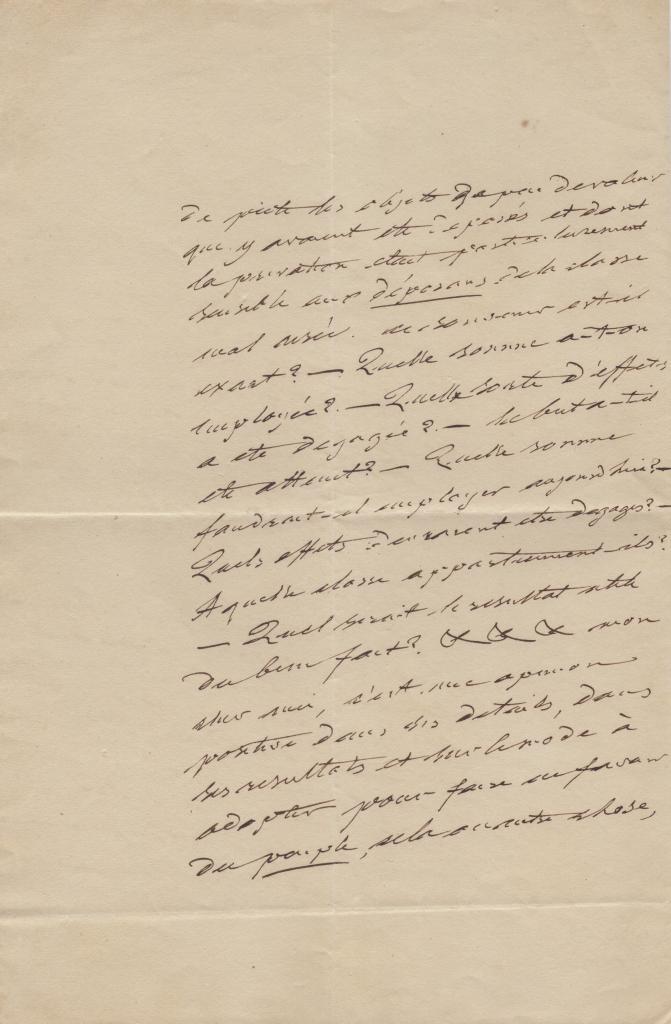 de piété les objets de peu de valeur
qui y avaient été déposés et dont
la privation était particulièrement
sensible aux déposans de la classe
mal aisée. ce souvenir est-il
exact? — Quelle somme a-t-on
employée? — Quelle sorte d'effets
a été dégagée? — le but a-t-il
été atteint? — Quelle somme
faudrait-il employer aujourd'hui? —
Quels effets devraient être dégagés? —
A quelle classe appartiennent-ils?
— Quel serait le résultat utile
du bienfait? mon
cher ami, c'est une opinion
positive dans ses détails, dans
ses résultats et sur le mode à
adopter pour faire en faveur
du peuple, cela ou autre chose,